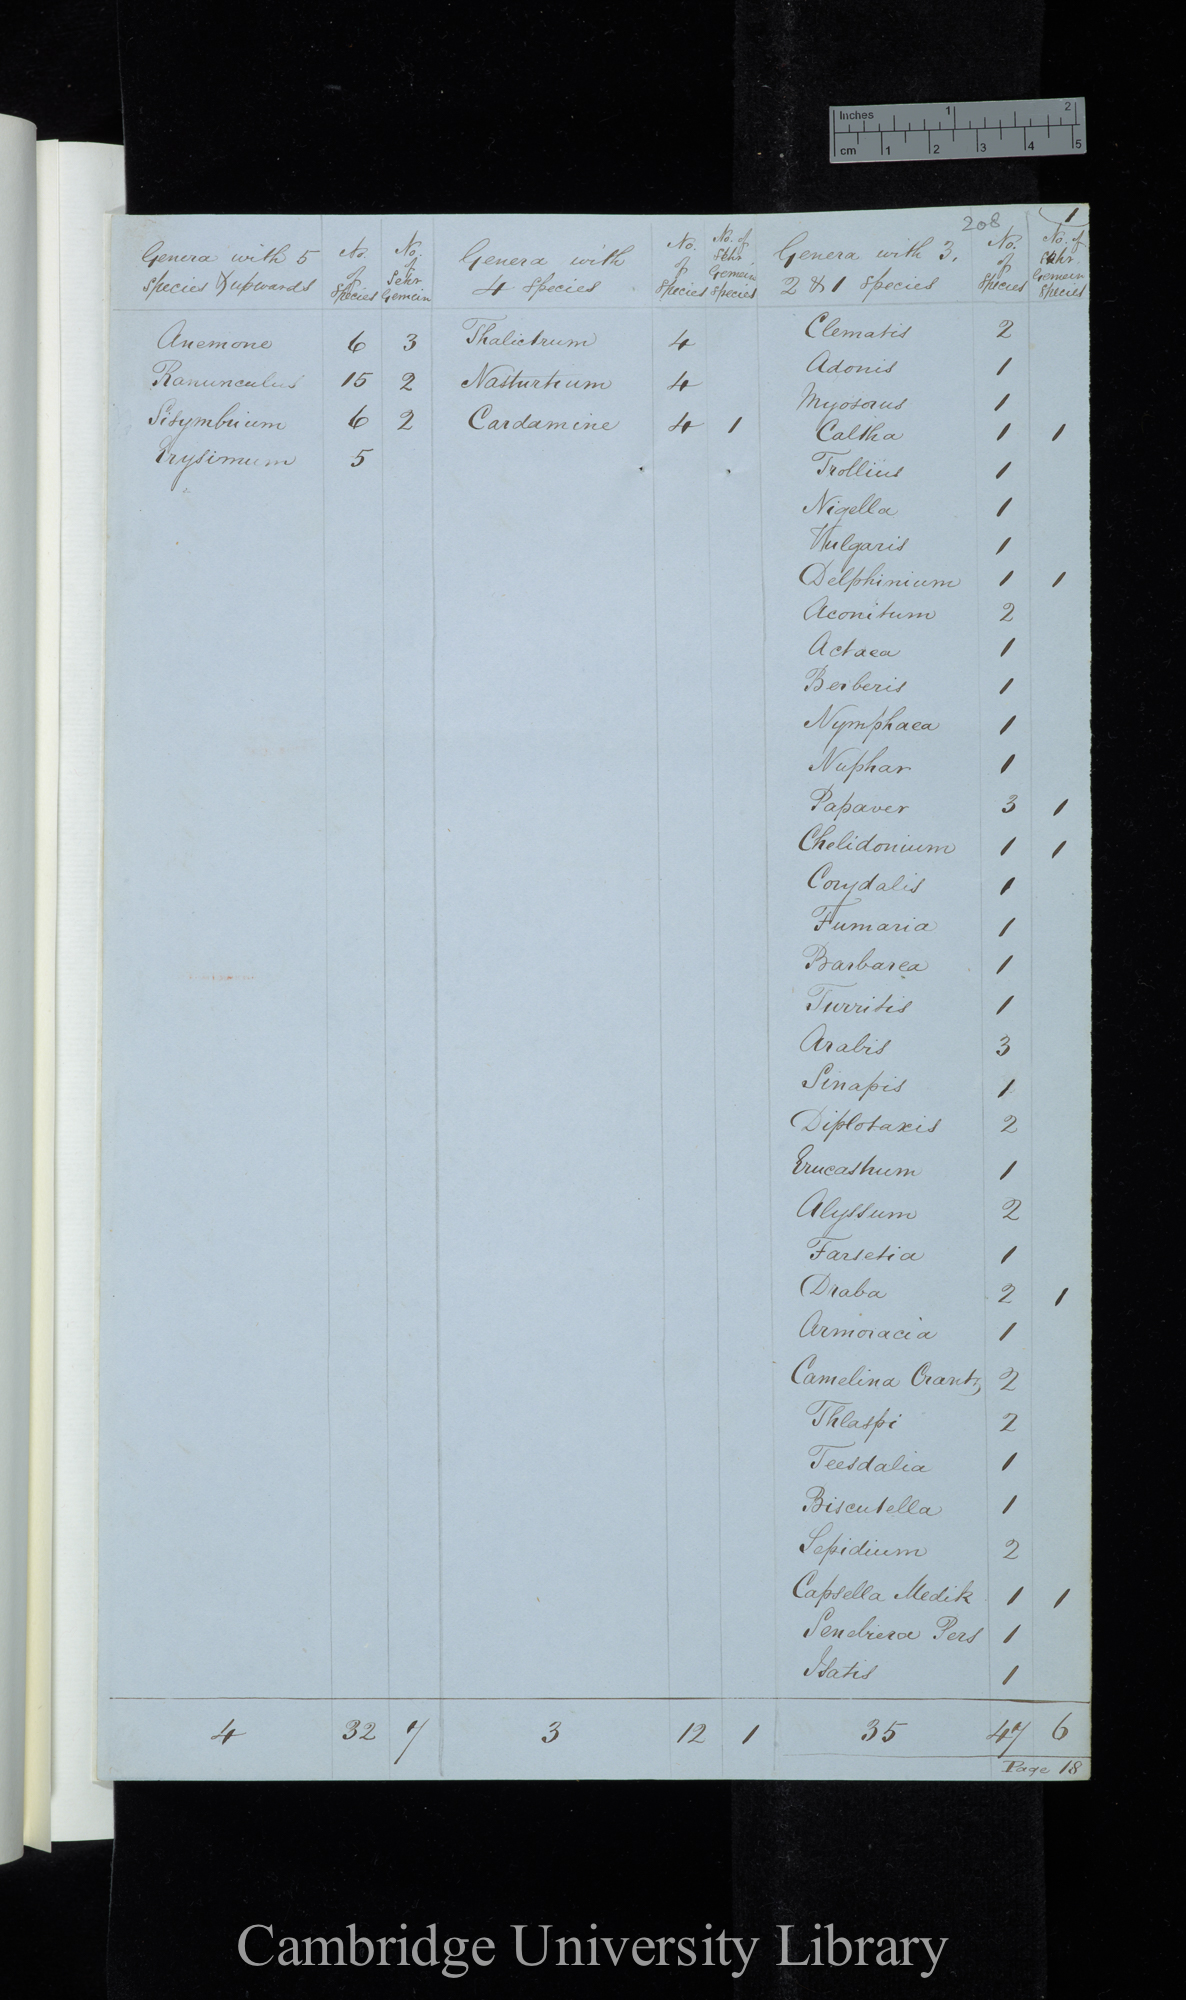 Inches 1 2
cm 1 2 3 4 5
208
1
Genera with 5 species & upwards | No. of Species | No. of Sehr Gemein | Genera with 4 Species | No. of Species | No. of Sehr Gemein Species | Genera with 3, 2 & 1 Species | No. of Species | No. of Sehr Gemein Species
Anemone 6 3 Thalictrum 4 Clematis 2
Adonis 1
Ranunculus 15 2 Nasturtium 4 Myosorus 1
Sisymbrium 6 2 Cardamine 4 1 Caltha 1 1
Erysimum 5 Trollius 1
Nigella 1
Vulgaris 1
Delphinium 1 1
Aconitum 2
Actaea 1
Berberis 1
Nymphaea 1
Nuphar 1
Papaver 3 1
Chelidonium 1 1
Corydalis 1
Fumaria 1
Barbarea 1
Turritis 1
Arabis 3
Sinapis 1
Diplotaxis 2
Erucastrum 1
Alyssum 2
Farsetia 1
Draba 2 1
Armoracia 1
Camelina Crantz 2
Thlaspi 2
Teesdalia 1
Biscutella 1
Lepidium 2
Capsella Medik 1 1
Senebiera Pers 1
Isatis 1
4 32 7 3 12 1 35 47 6
Page 18
Cambridge University Library